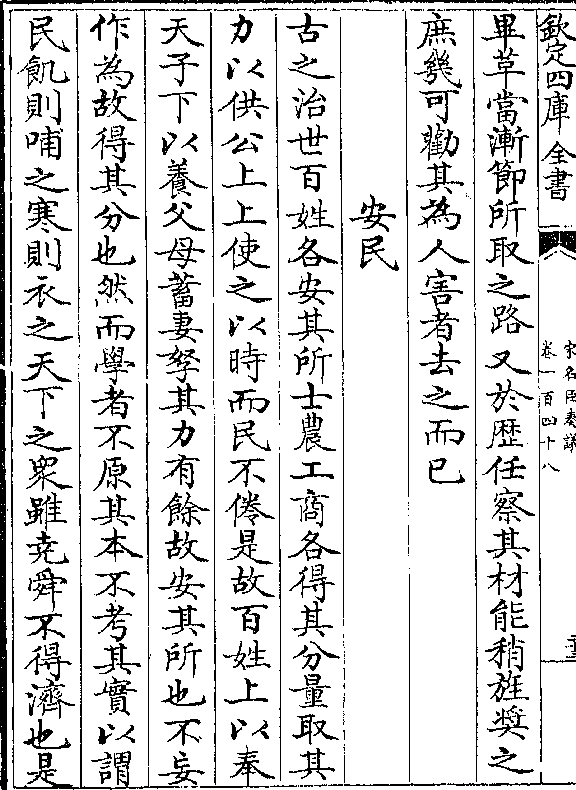 欽定四庫全書
宋名臣奏議
卷一百四十八
畢草當漸節所取之路又於歴任察其材能稍旌奬之
庶幾可勸其為人害者去之而已
安民
古之治世百姓各安其所士農工商各得其分量取其
力以供公上上使之以時而民不倦是故百姓上以奉
天子下以養父母蓄妻孥其力有餘故安其所也不妄
作為故得其分也然而學者不原其本不考其實以謂
民飢則哺之寒則衣之天下之衆雖堯舜不得濟也是